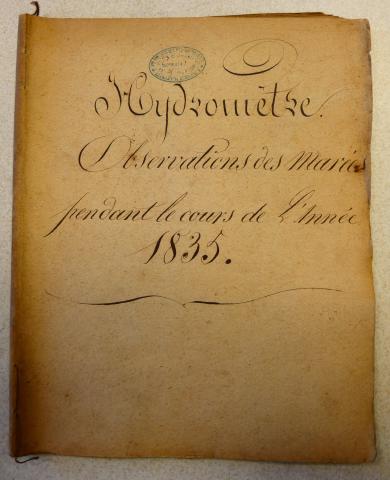 Hydromètre.
Observations des Marées
pendant le cours de L'Année
1835.